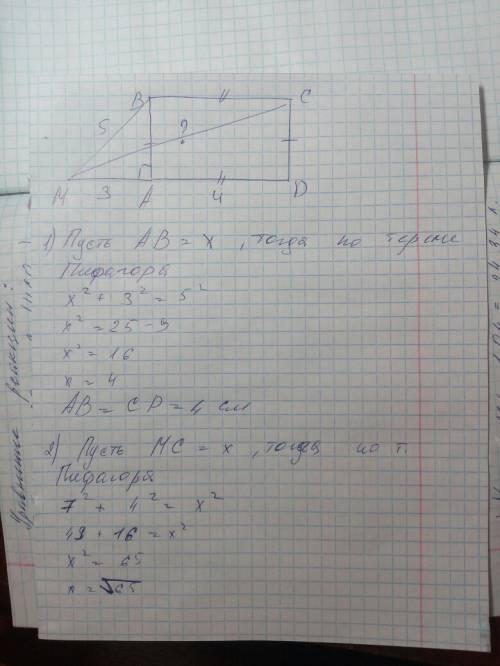 B C
5 ?
M 3 A 4 D
1) Пусть AB = x , тогда по теореме
Пифагора
x² + 3² = 5²
x² = 25 - 9
x² = 16
x = 4
AB = CD = 4 см
2) Пусть MC = x , тогда по т.
Пифагора
7² + 4² = x²
49 + 16 = x²
x² = 65
x = √65
Уравнение реакции: